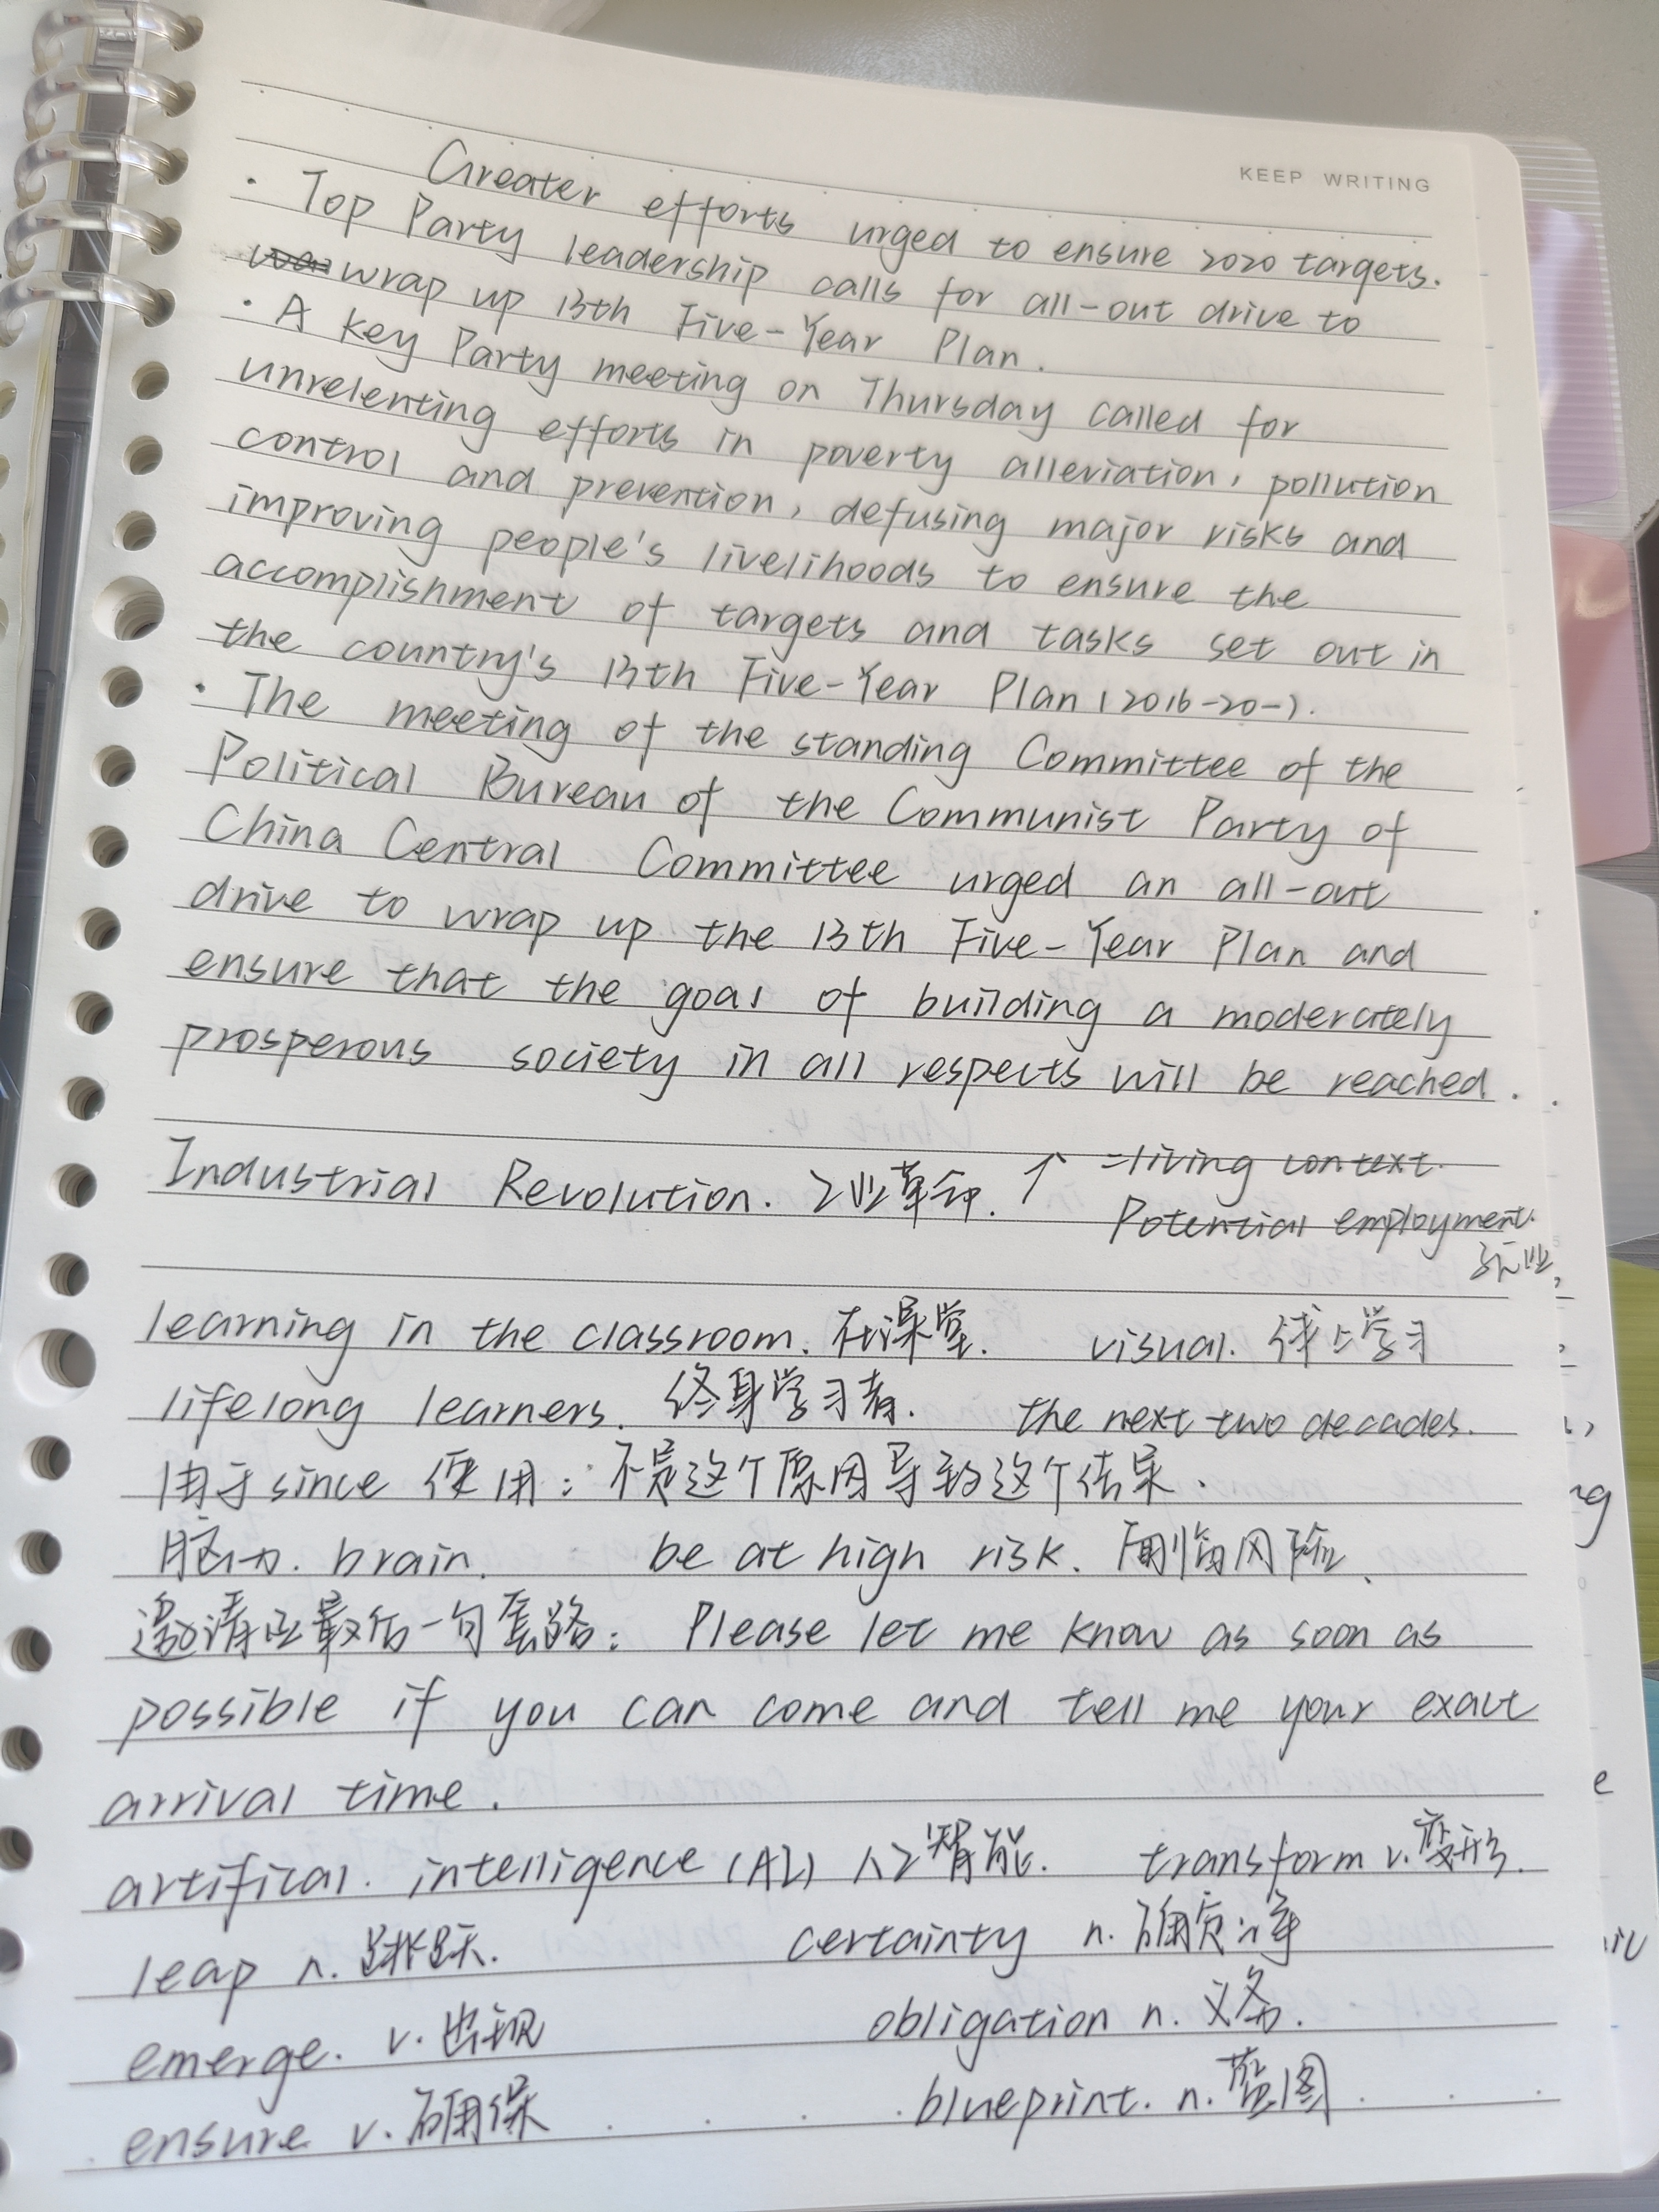 KEEP WRITING
Greater efforts urged to ensure 2020 targets.
· Top Party leadership calls for all-out drive to
wrap up 13th Five-Year Plan.
· A key Party meeting on Thursday called for
unrelenting efforts in poverty alleviation, pollution
control and prevention, defusing major risks and
improving people's livelihoods to ensure the
accomplishment of targets and tasks set out in
the country's 13th Five-Year Plan (2016-20-).
· The meeting of the standing Committee of the
Political Bureau of the Communist Party of
China Central Committee urged an all-out
drive to wrap up the 13th Five-Year Plan and
ensure that the goal of building a moderately
prosperous society in all respects will be reached.
Industrial Revolution. 工业革命. ↑ =living context.
Potential employment.
就业
learning in the classroom. 在课堂. visual. 线上学习
lifelong learners. 终身学习者. the next two decades.
由于 since 使用: 不是这个原因导致这个结果.
脑力. brain. be at high risk. 面临风险.
邀请函最后一句套路: Please let me know as soon as
possible if you can come and tell me your exact
arrival time.
artifical. intelligence (AI) 人工智能. transform v. 变形.
leap n. 跳跃. certainty n. 确定性
emerge. v. 出现 obligation n. 义务.
ensure v. 确保 blueprint. n. 蓝图.